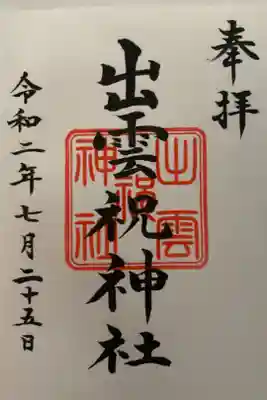 奉拝
出雲祝神社
令和二年七月二十五日
出雲
祝
神社